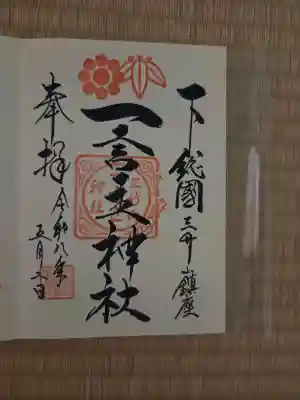 下総國 三竹山鎮座
一言主神社
奉拝 令和八年
五月